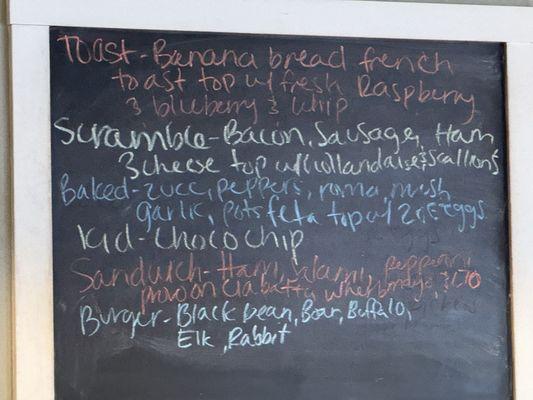 Toast - Banana bread french
toast top w/ fresh Raspberry
& blueberry & whip
Scramble - Bacon, Sausage, Ham
3 cheese top w/ hollandaise & scallions
Baked - zucc, peppers, roma, mush
garlic, pots feta top w/ 2 OE eggs
Kid - Choco chip
Sandwich - Ham, salami, pepperoni,
provo on ciabatta, w/ & LTO
Burger - Black bean, Boar, Buffalo,
Elk, Rabbit